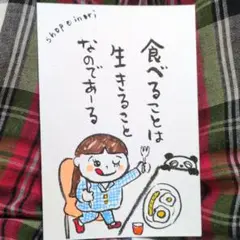 shop e inori
食べることは
生きること
なのであーる